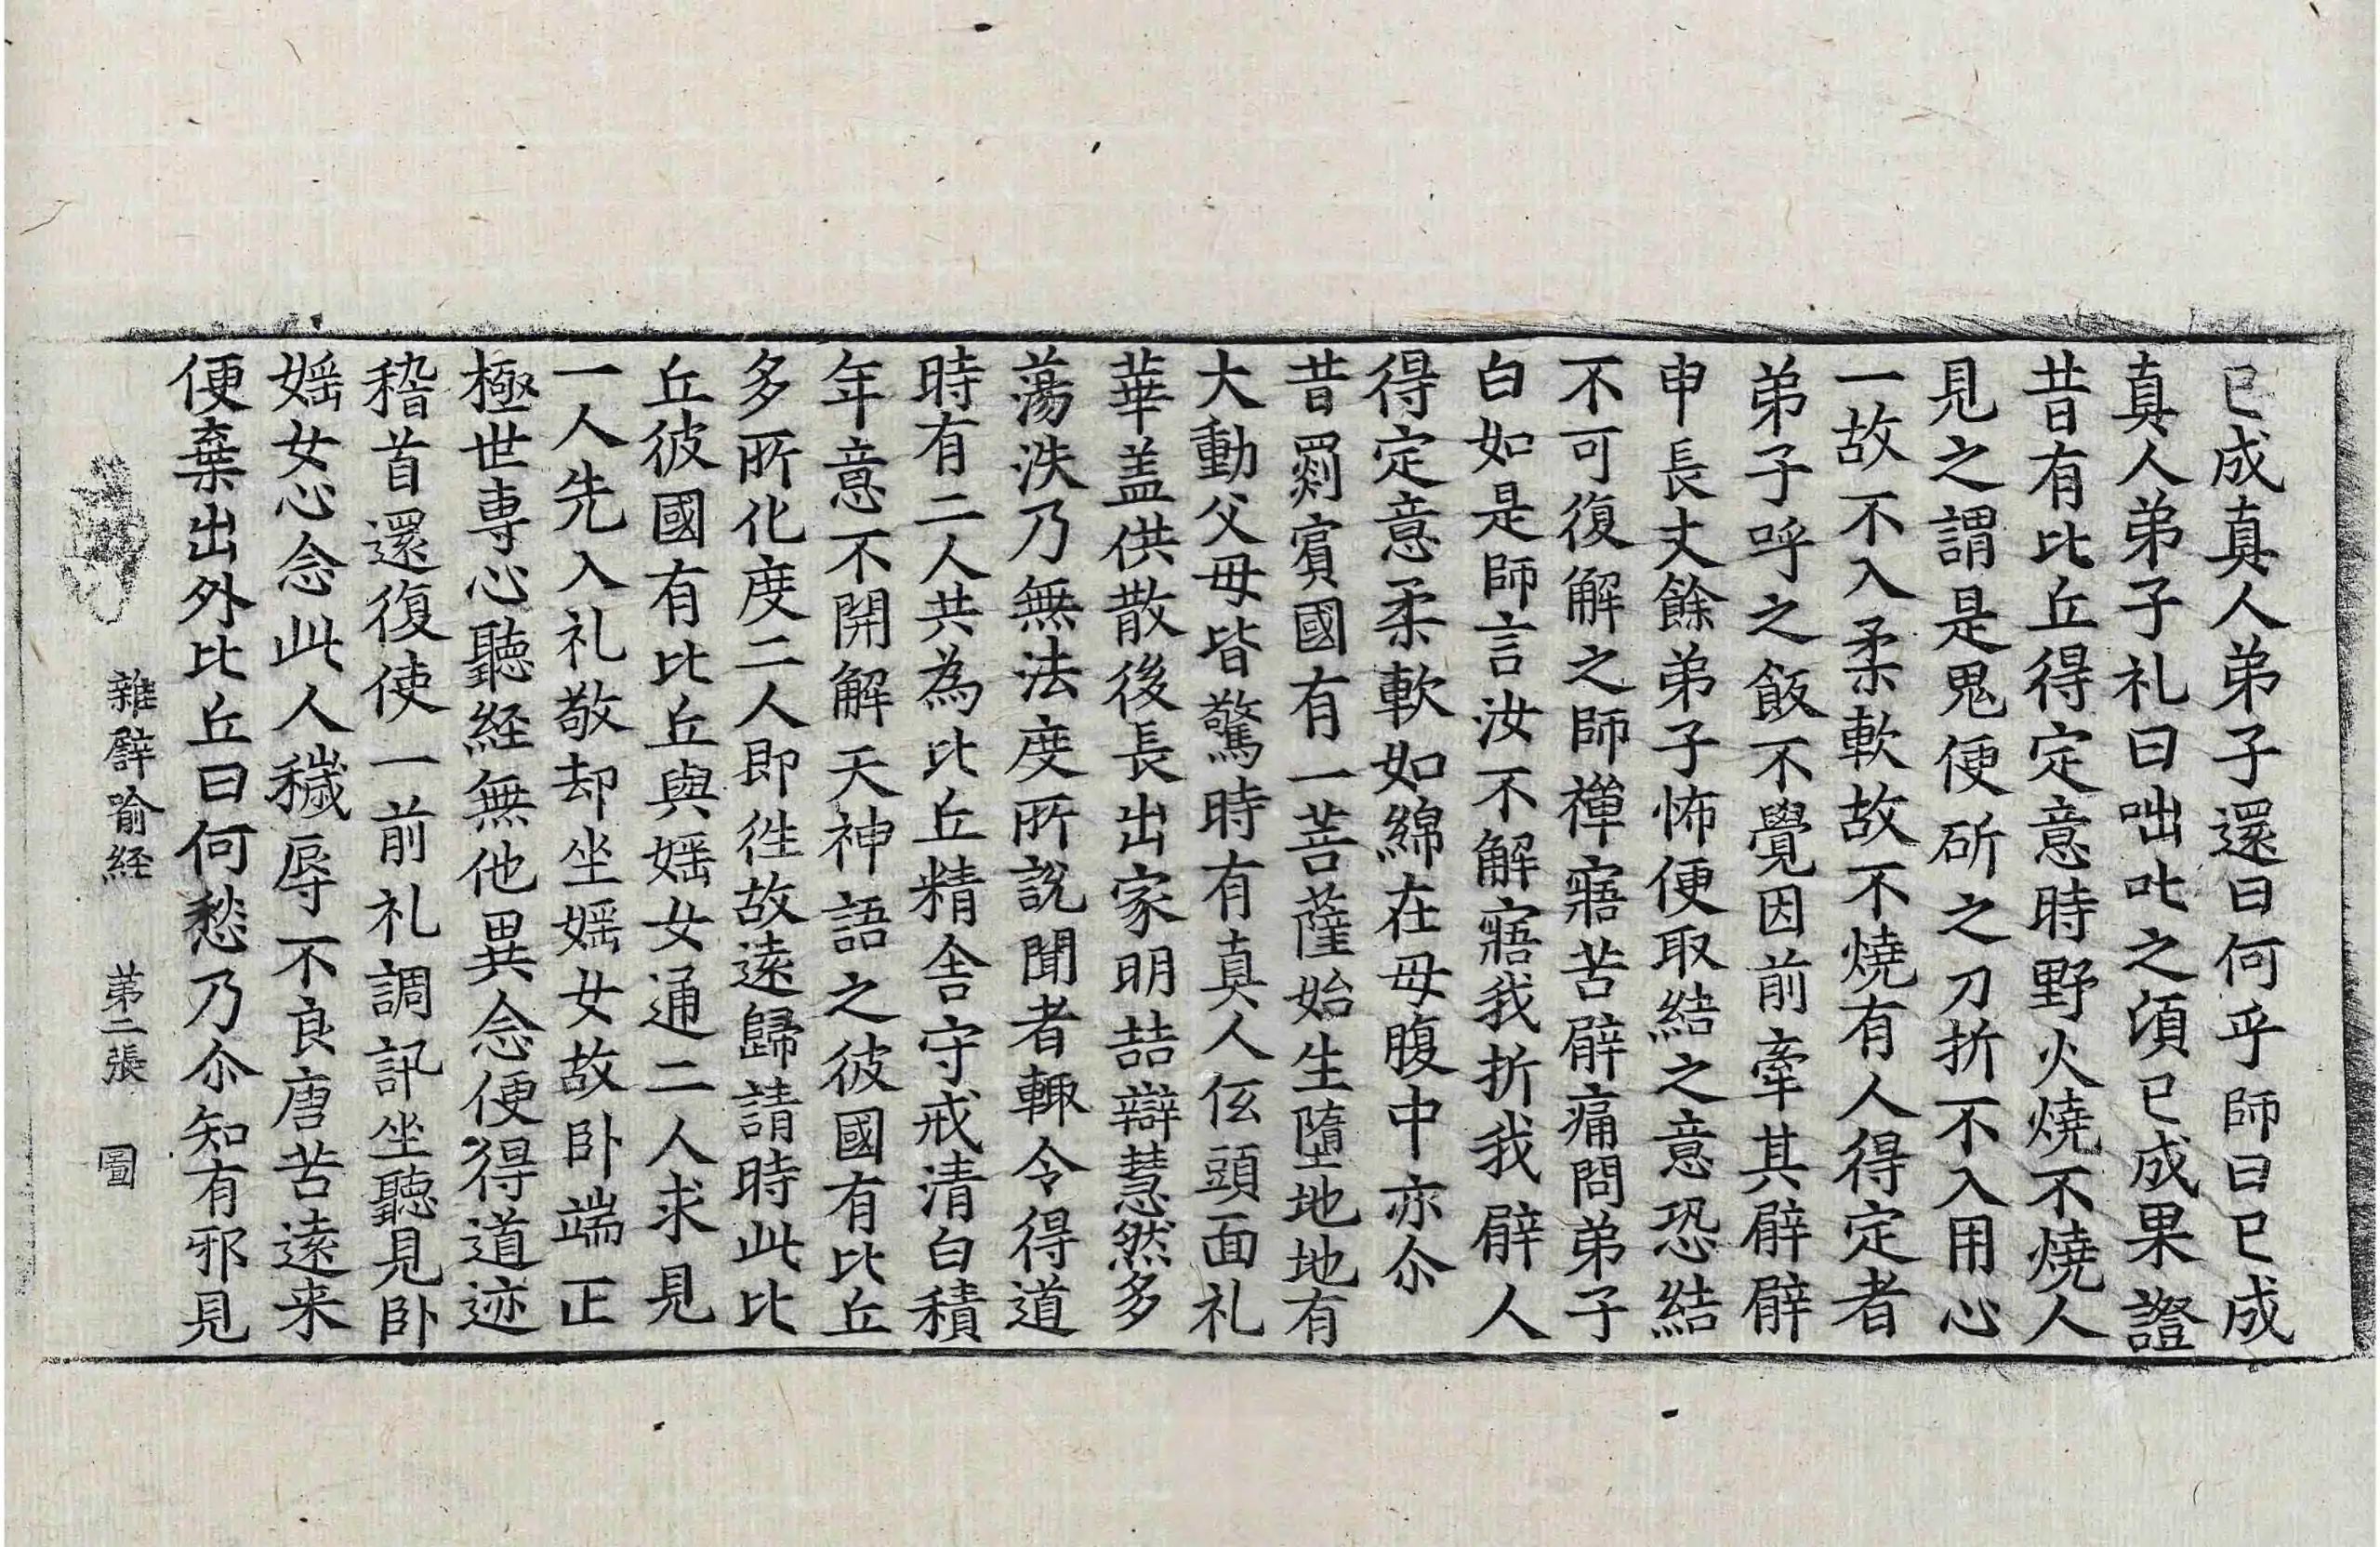 已成真人弟子還曰何乎師曰已成
真人弟子礼曰咄叱之湏已成果證
昔有比丘得定意時野火燒不燒人
見之謂是鬼便斫之刀折不入用心
一故不入柔軟故不燒有人得定者
弟子呼之飯不覺因前牽其臂臂
申長丈餘弟子怖便取結之意恐結
不可復解之師禪寤苦臂痛問弟子
白如是師言汝不解寤我折我臂人
得定意柔軟如綿在母腹中亦尒
昔罽賓國有一菩薩始生墮地地有
大動父母皆驚時有真人伭頭面礼
華盖供散後長出家明喆辯慧然多
蕩泆乃無法度所說聞者輙令得道
時有二人共為比丘精舍守戒清白積
年意不開解天神語之彼國有比丘
多所化度二人即徃故遠歸請時此比
丘彼國有比丘與婬女通二人求見
一人先入礼敬却坐婬女故卧端正
極世専心聽経無他異念便得道迹
稽首還復使一前礼調訊坐聽見卧
婬女心念此人穢辱不良唐苦遠来
便棄出外比丘曰何愁乃尒知有邪見
雜譬喻経 苐二張 圖